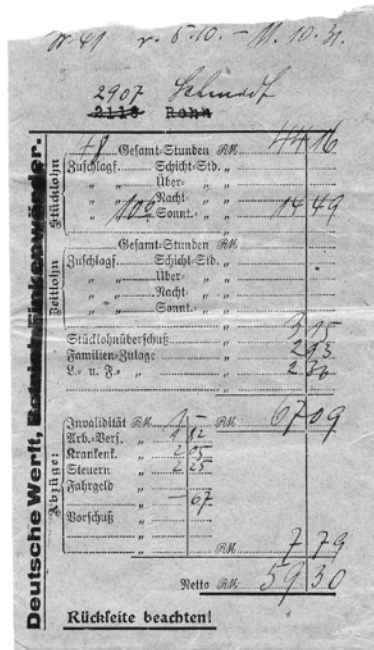 Nr. 41 v. 5.10. – 11.10.31.
2907 Schmidt
2118 Rohn
Deutsche Werft, Betrieb Finkenwärder.
Stücklohn
48 Gesamt-Stunden RM. 44 16
Zuschlag f. Schicht-Std. "
" " Über- " "
" " Nacht- " "
" " 10⁰ Sonnt.- " " 14 49
Zeitlohn
Gesamt-Stunden RM.
Zuschlag f. Schicht-Std. "
" " Über- " "
" " Nacht- " "
" " Sonnt.- " "
Stücklohnüberschuß "
Familien-Zulage " 2 93
L.- u. F.- " "
67 09
Abzüge:
Invalidität RM. 1 –
Arb.-Vers. " 1 82
Krankenk. " 2 05
Steuern " 2 25
Fahrgeld "
" – 67
Vorschuß "
"
" RM. 7 79
Netto RM. 59 30
Rückseite beachten!